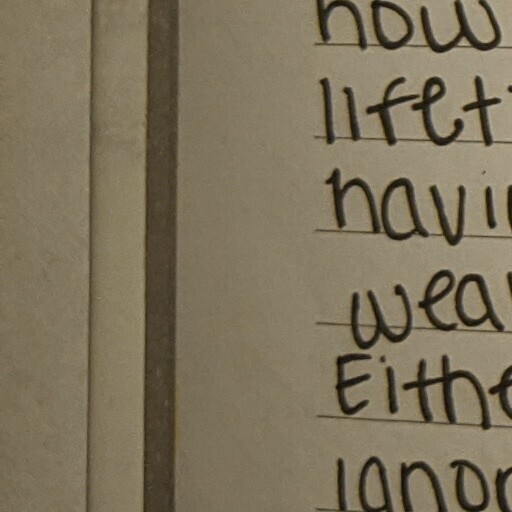 how
lifet
havi
wea
Eithe
ignor